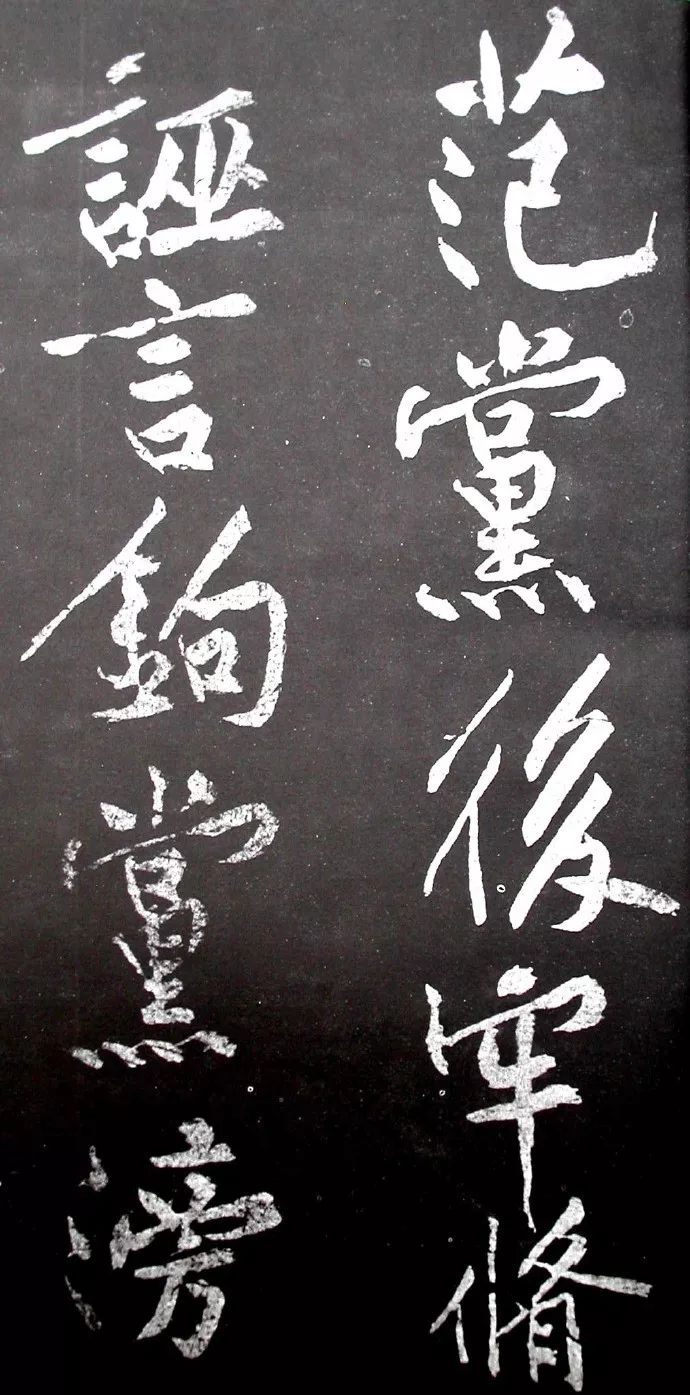 范黨後牢脩
誣言鉤黨滂